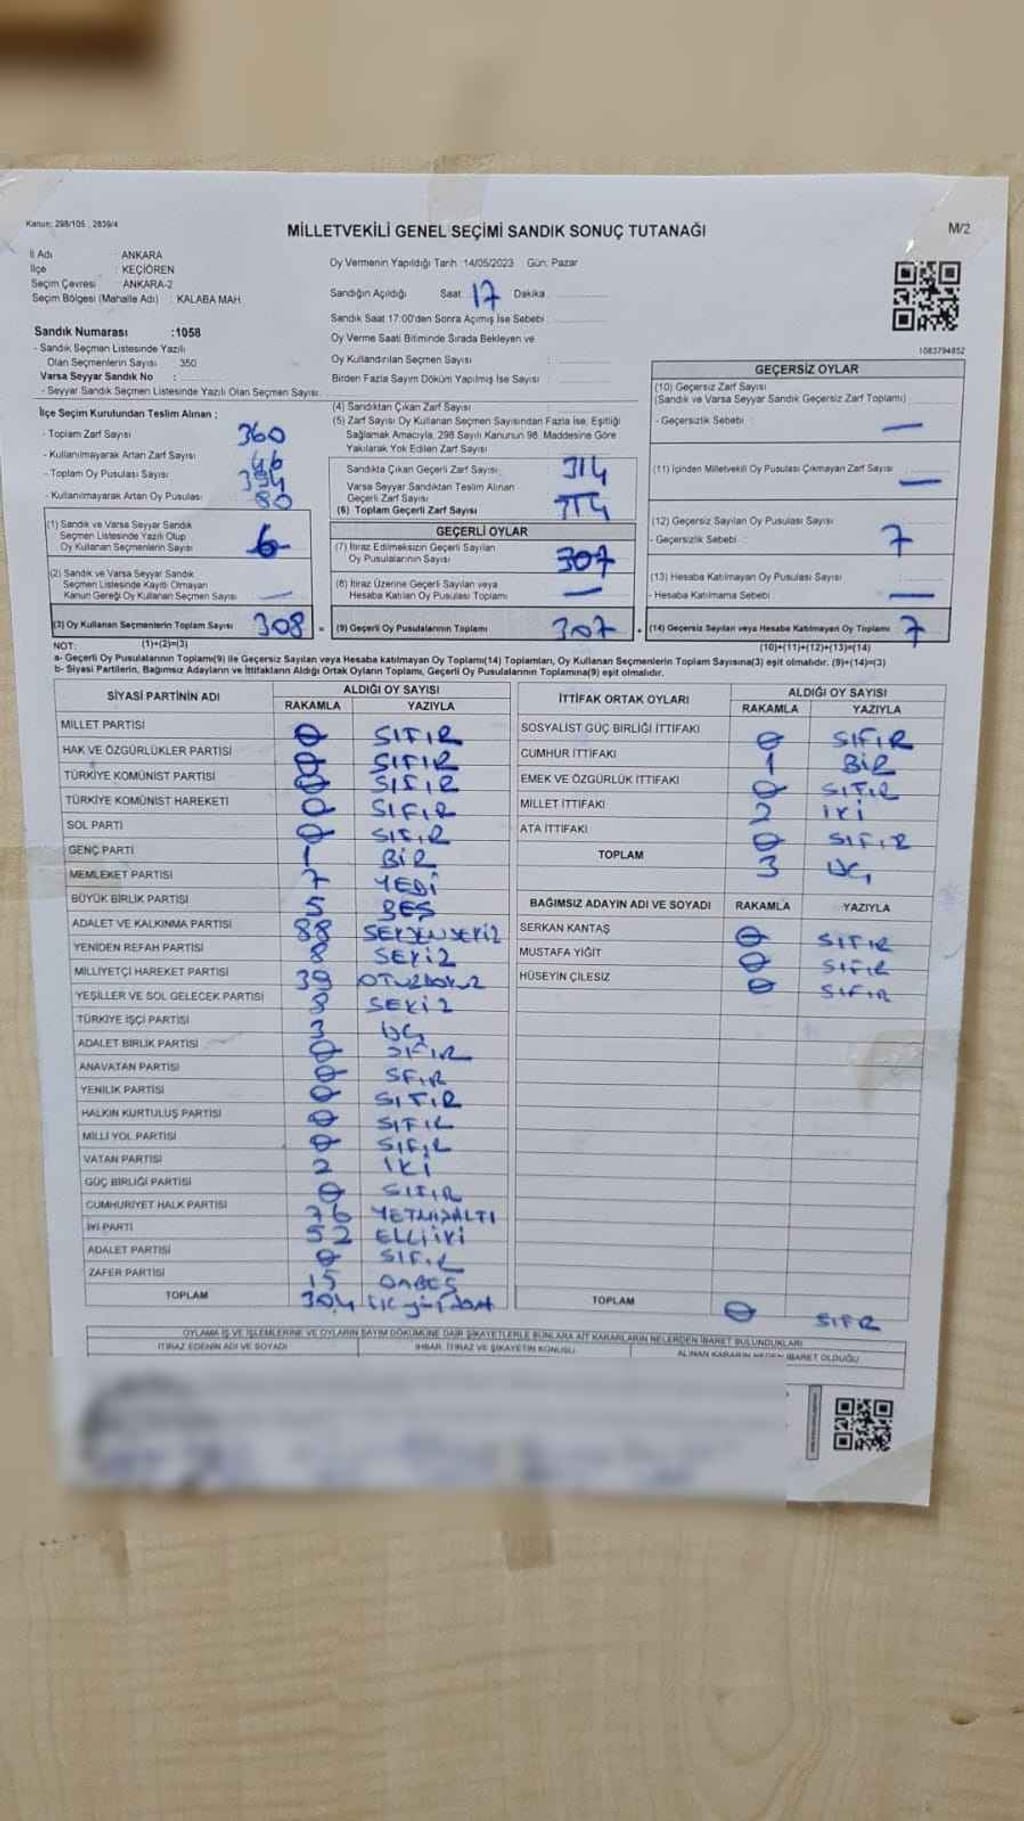 Kanun: 298/105 2839/4
MİLLETVEKİLİ GENEL SEÇİMİ SANDIK SONUÇ TUTANAĞI
M/2
İl Adı : ANKARA
İlçe : KEÇİÖREN
Seçim Çevresi : ANKARA-2
Seçim Bölgesi (Mahalle Adı) : KALABA MAH.
Oy Vermenin Yapıldığı Tarih :14/05/2023 Gün: Pazar
Sandığın Açıldığı Saat 17 Dakika
Sandık Saat 17:00'den Sonra Açılmış İse Sebebi
Oy Verme Saati Bitiminde Sırada Bekleyen ve
Oy Kullandırılan Seçmen Sayısı :
Birden Fazla Sayım Döküm Yapılmış İse Sayısı :
1083794852
Sandık Numarası :1058
- Sandık Seçmen Listesinde Yazılı
Olan Seçmenlerin Sayısı : 350
Varsa Seyyar Sandık No :
- Seyyar Sandık Seçmen Listesinde Yazılı Olan Seçmen Sayısı:
İlçe Seçim Kurulundan Teslim Alınan ;
- Toplam Zarf Sayısı 360
- Kullanılmayarak Artan Zarf Sayısı 46
- Toplam Oy Pusulası Sayısı 394
- Kullanılmayarak Artan Oy Pusulası 80
(1) Sandık ve Varsa Seyyar Sandık
Seçmen Listesinde Yazılı Olup
Oy Kullanan Seçmenlerin Sayısı
(2) Sandık ve Varsa Seyyar Sandık
Seçmen Listesinde Kayıtlı Olmayan
Kanun Gereği Oy Kullanan Seçmen Sayısı —
(3) Oy Kullanan Seçmenlerin Toplam Sayısı 308 =
(1)+(2)=(3)
(4) Sandıktan Çıkan Zarf Sayısı :
(5) Zarf Sayısı Oy Kullanan Seçmen Sayısından Fazla İse, Eşitliği
Sağlamak Amacıyla, 298 Sayılı Kanunun 98. Maddesine Göre
Yakılarak Yok Edilen Zarf Sayısı
Sandıkta Çıkan Geçerli Zarf Sayısı: 314
Varsa Seyyar Sandıktan Teslim Alınan
Geçerli Zarf Sayısı
(6) Toplam Geçerli Zarf Sayısı 314
GEÇERLİ OYLAR
(7) İtiraz Edilmeksizin Geçerli Sayılan
Oy Pusulalarının Sayısı 307
(8) İtiraz Üzerine Geçerli Sayılan veya
Hesaba Katılan Oy Pusulası Toplamı —
(9) Geçerli Oy Pusulalarının Toplamı 307 +
GEÇERSİZ OYLAR
(10) Geçersiz Zarf Sayısı
(Sandık ve Varsa Seyyar Sandık Geçersiz Zarf Toplamı)
- Geçersizlik Sebebi : —
(11) İçinden Milletvekili Oy Pusulası Çıkmayan Zarf Sayısı —
(12) Geçersiz Sayılan Oy Pusulası Sayısı
- Geçersizlik Sebebi : 7
(13) Hesaba Katılmayan Oy Pusulası Sayısı
- Hesaba Katılmama Sebebi : —
(14) Geçersiz Sayılan veya Hesaba Katılmayan Oy Toplamı 7
(10)+(11)+(12)+(13)=(14)
NOT:
a- Geçerli Oy Pusulalarının Toplamı(9) ile Geçersiz Sayılan veya Hesaba katılmayan Oy Toplamı(14) Toplamları, Oy Kullanan Seçmenlerin Toplam Sayısına(3) eşit olmalıdır. (9)+(14)=(3)
b- Siyasi Partilerin, Bağımsız Adayların ve İttifakların Aldığı Ortak Oyların Toplamı, Geçerli Oy Pusulalarının Toplamına(9) eşit olmalıdır.
SİYASİ PARTİNİN ADI ALDIĞI OY SAYISI
RAKAMLA YAZIYLA
MİLLET PARTİSİ 0 SIFIR
HAK VE ÖZGÜRLÜKLER PARTİSİ 0 SIFIR
TÜRKİYE KOMÜNİST PARTİSİ 0 SIFIR
TÜRKİYE KOMÜNİST HAREKETİ 0 SIFIR
SOL PARTİ 0 SIFIR
GENÇ PARTİ 1 BİR
MEMLEKET PARTİSİ 7 YEDİ
BÜYÜK BİRLİK PARTİSİ 5 BEŞ
ADALET VE KALKINMA PARTİSİ 88 SEKSENSEKİZ
YENİDEN REFAH PARTİSİ 8 SEKİZ
MİLLİYETÇİ HAREKET PARTİSİ 39 OTUZDOKUZ
YEŞİLLER VE SOL GELECEK PARTİSİ 8 SEKİZ
TÜRKİYE İŞÇİ PARTİSİ 3 ÜÇ
ADALET BİRLİK PARTİSİ 0 SIFIR
ANAVATAN PARTİSİ 0 SFIR
YENİLİK PARTİSİ 0 SIFIR
HALKIN KURTULUŞ PARTİSİ 0 SIFIR
MİLLİ YOL PARTİSİ 0 SIFIR
VATAN PARTİSİ 2 İKİ
GÜÇ BİRLİĞİ PARTİSİ 0 SIFIR
CUMHURİYET HALK PARTİSİ 76 YETMİŞALTI
İYİ PARTİ 52 ELLİİKİ
ADALET PARTİSİ 0 SIFIR
ZAFER PARTİSİ 15 ONBEŞ
TOPLAM 304
İTTİFAK ORTAK OYLARI ALDIĞI OY SAYISI
RAKAMLA YAZIYLA
SOSYALİST GÜÇ BİRLİĞİ İTTİFAKI 0 SIFIR
CUMHUR İTTİFAKI 1 BİR
EMEK VE ÖZGÜRLÜK İTTİFAKI 0 SIFIR
MİLLET İTTİFAKI 2 İKİ
ATA İTTİFAKI 0 SIFIR
TOPLAM 3 ÜÇ
BAĞIMSIZ ADAYIN ADI VE SOYADI RAKAMLA YAZIYLA
SERKAN KANTAŞ 0 SIFIR
MUSTAFA YİĞİT 0 SIFIR
HÜSEYİN ÇİLESİZ 0 SIFIR
TOPLAM 0 SIFIR
OYLAMA İŞ VE İŞLEMLERİNE VE OYLARIN SAYIM DÖKÜMÜNE DAİR ŞİKAYETLERLE BUNLARA AİT KARARLARIN NELERDEN İBARET BULUNDUKLARI
İTİRAZ EDENİN ADI VE SOYADI İHBAR, İTİRAZ VE ŞİKAYETİN KONUSU ALINAN KARARIN NEDEN İBARET OLDUĞU